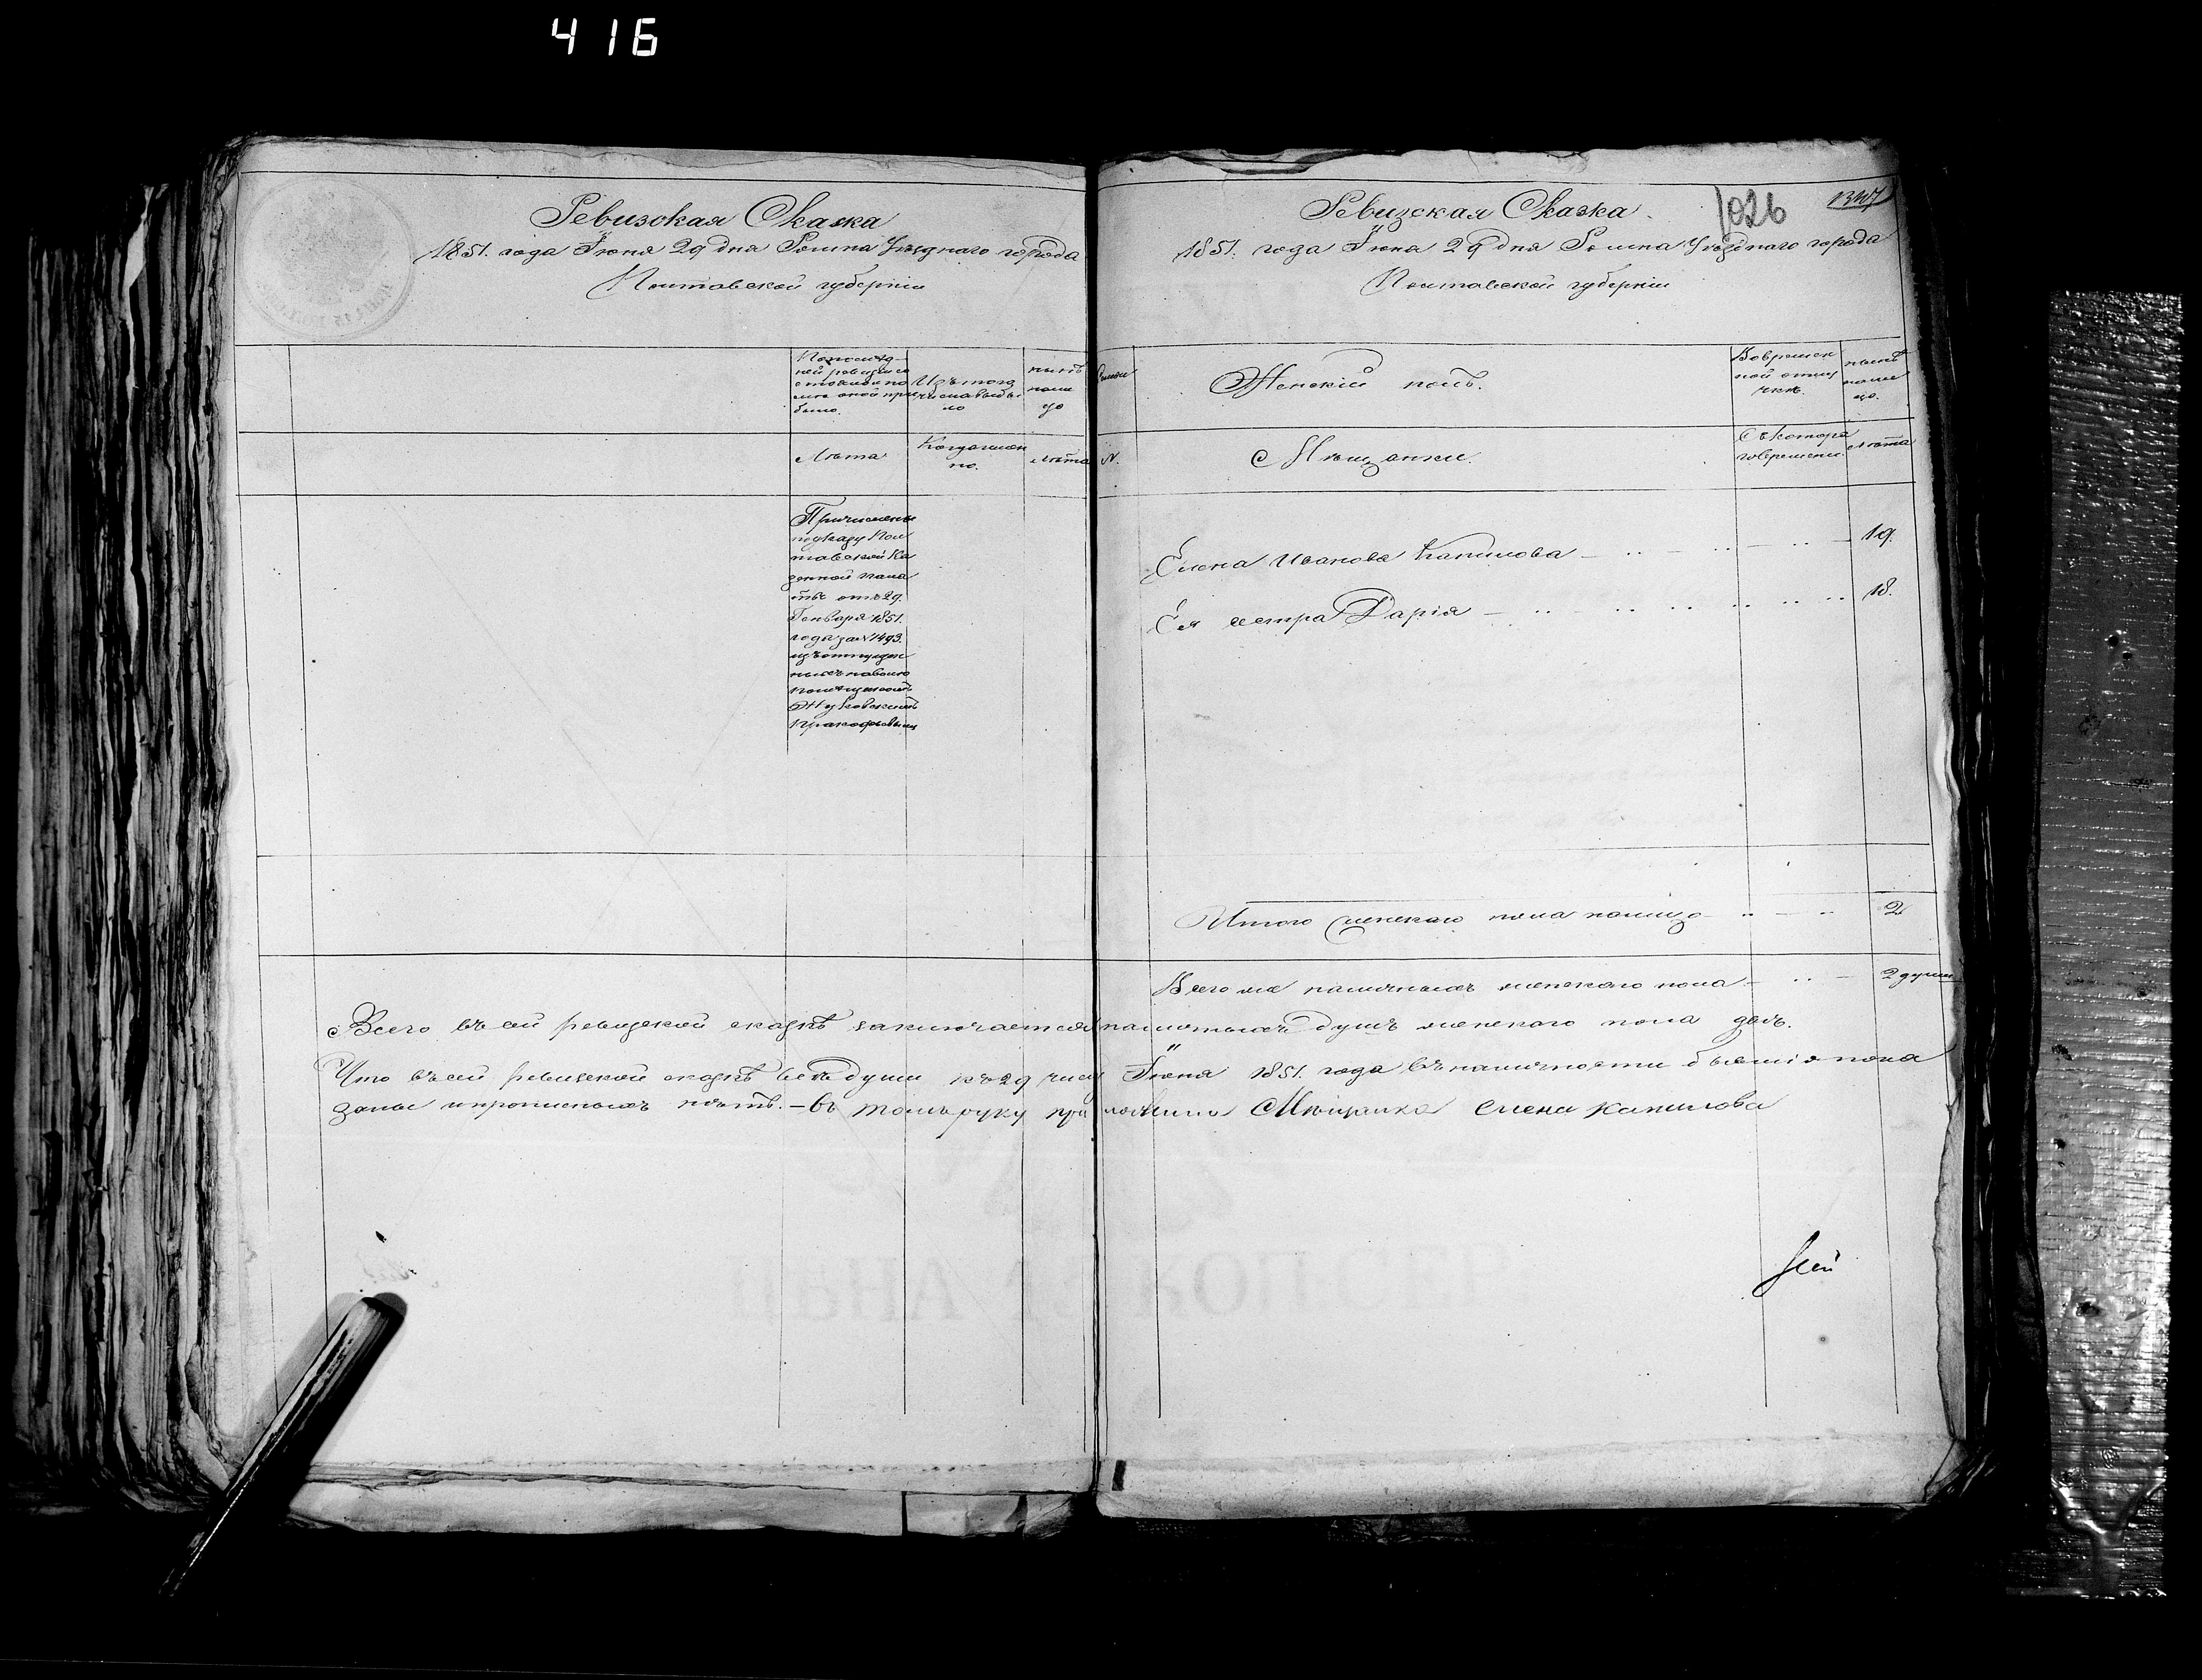 416
Ревизская Сказка
1851. года Іюня 29 дня Ромна Уѣзднаго города
Полтавской губерніи
По послѣд-
ней ревизіи со
стояло и по
слѣ оной при
было.
Изъ того
числа выбы
ло
нынѣ
нали
цо
Лѣта
Когда имен
но.
Лѣта
Причислены
по указу Пол
тавской Ка
зенной пала
ты отъ 29.
Генваря 1851.
года за № 1493.
изъ отпущен
ныхъ на волю
помѣщикомъ
Жуковскимъ
Ревизская Сказка.
1026
1851. года Іюня 29 дня Ромна Уѣзднаго города
Полтавской губерніи
Семьи
Женскій полъ.
Вовремен
ной отлу
чкѣ.
нынѣ
нали
цо.
N.
Мѣщанки.
Съ котора
го времени.
Лѣта
Елена Иванова Капилова 19.
Ея сестра Дарія 18.
Итого женскаго пола налицо 2
Всего же наличныхъ женскаго пола 2 души
Всего въ сей ревизской сказкѣ заключается наличныхъ душъ женскаго пола двѣ.
Что въ сей ревизской сказкѣ всѣ души къ 29 числу Іюня 1851. года въ наличности бывшія пока
заны и прописныхъ нѣтъ. – въ томъ руку приложила Мѣщанка Елена Капилова